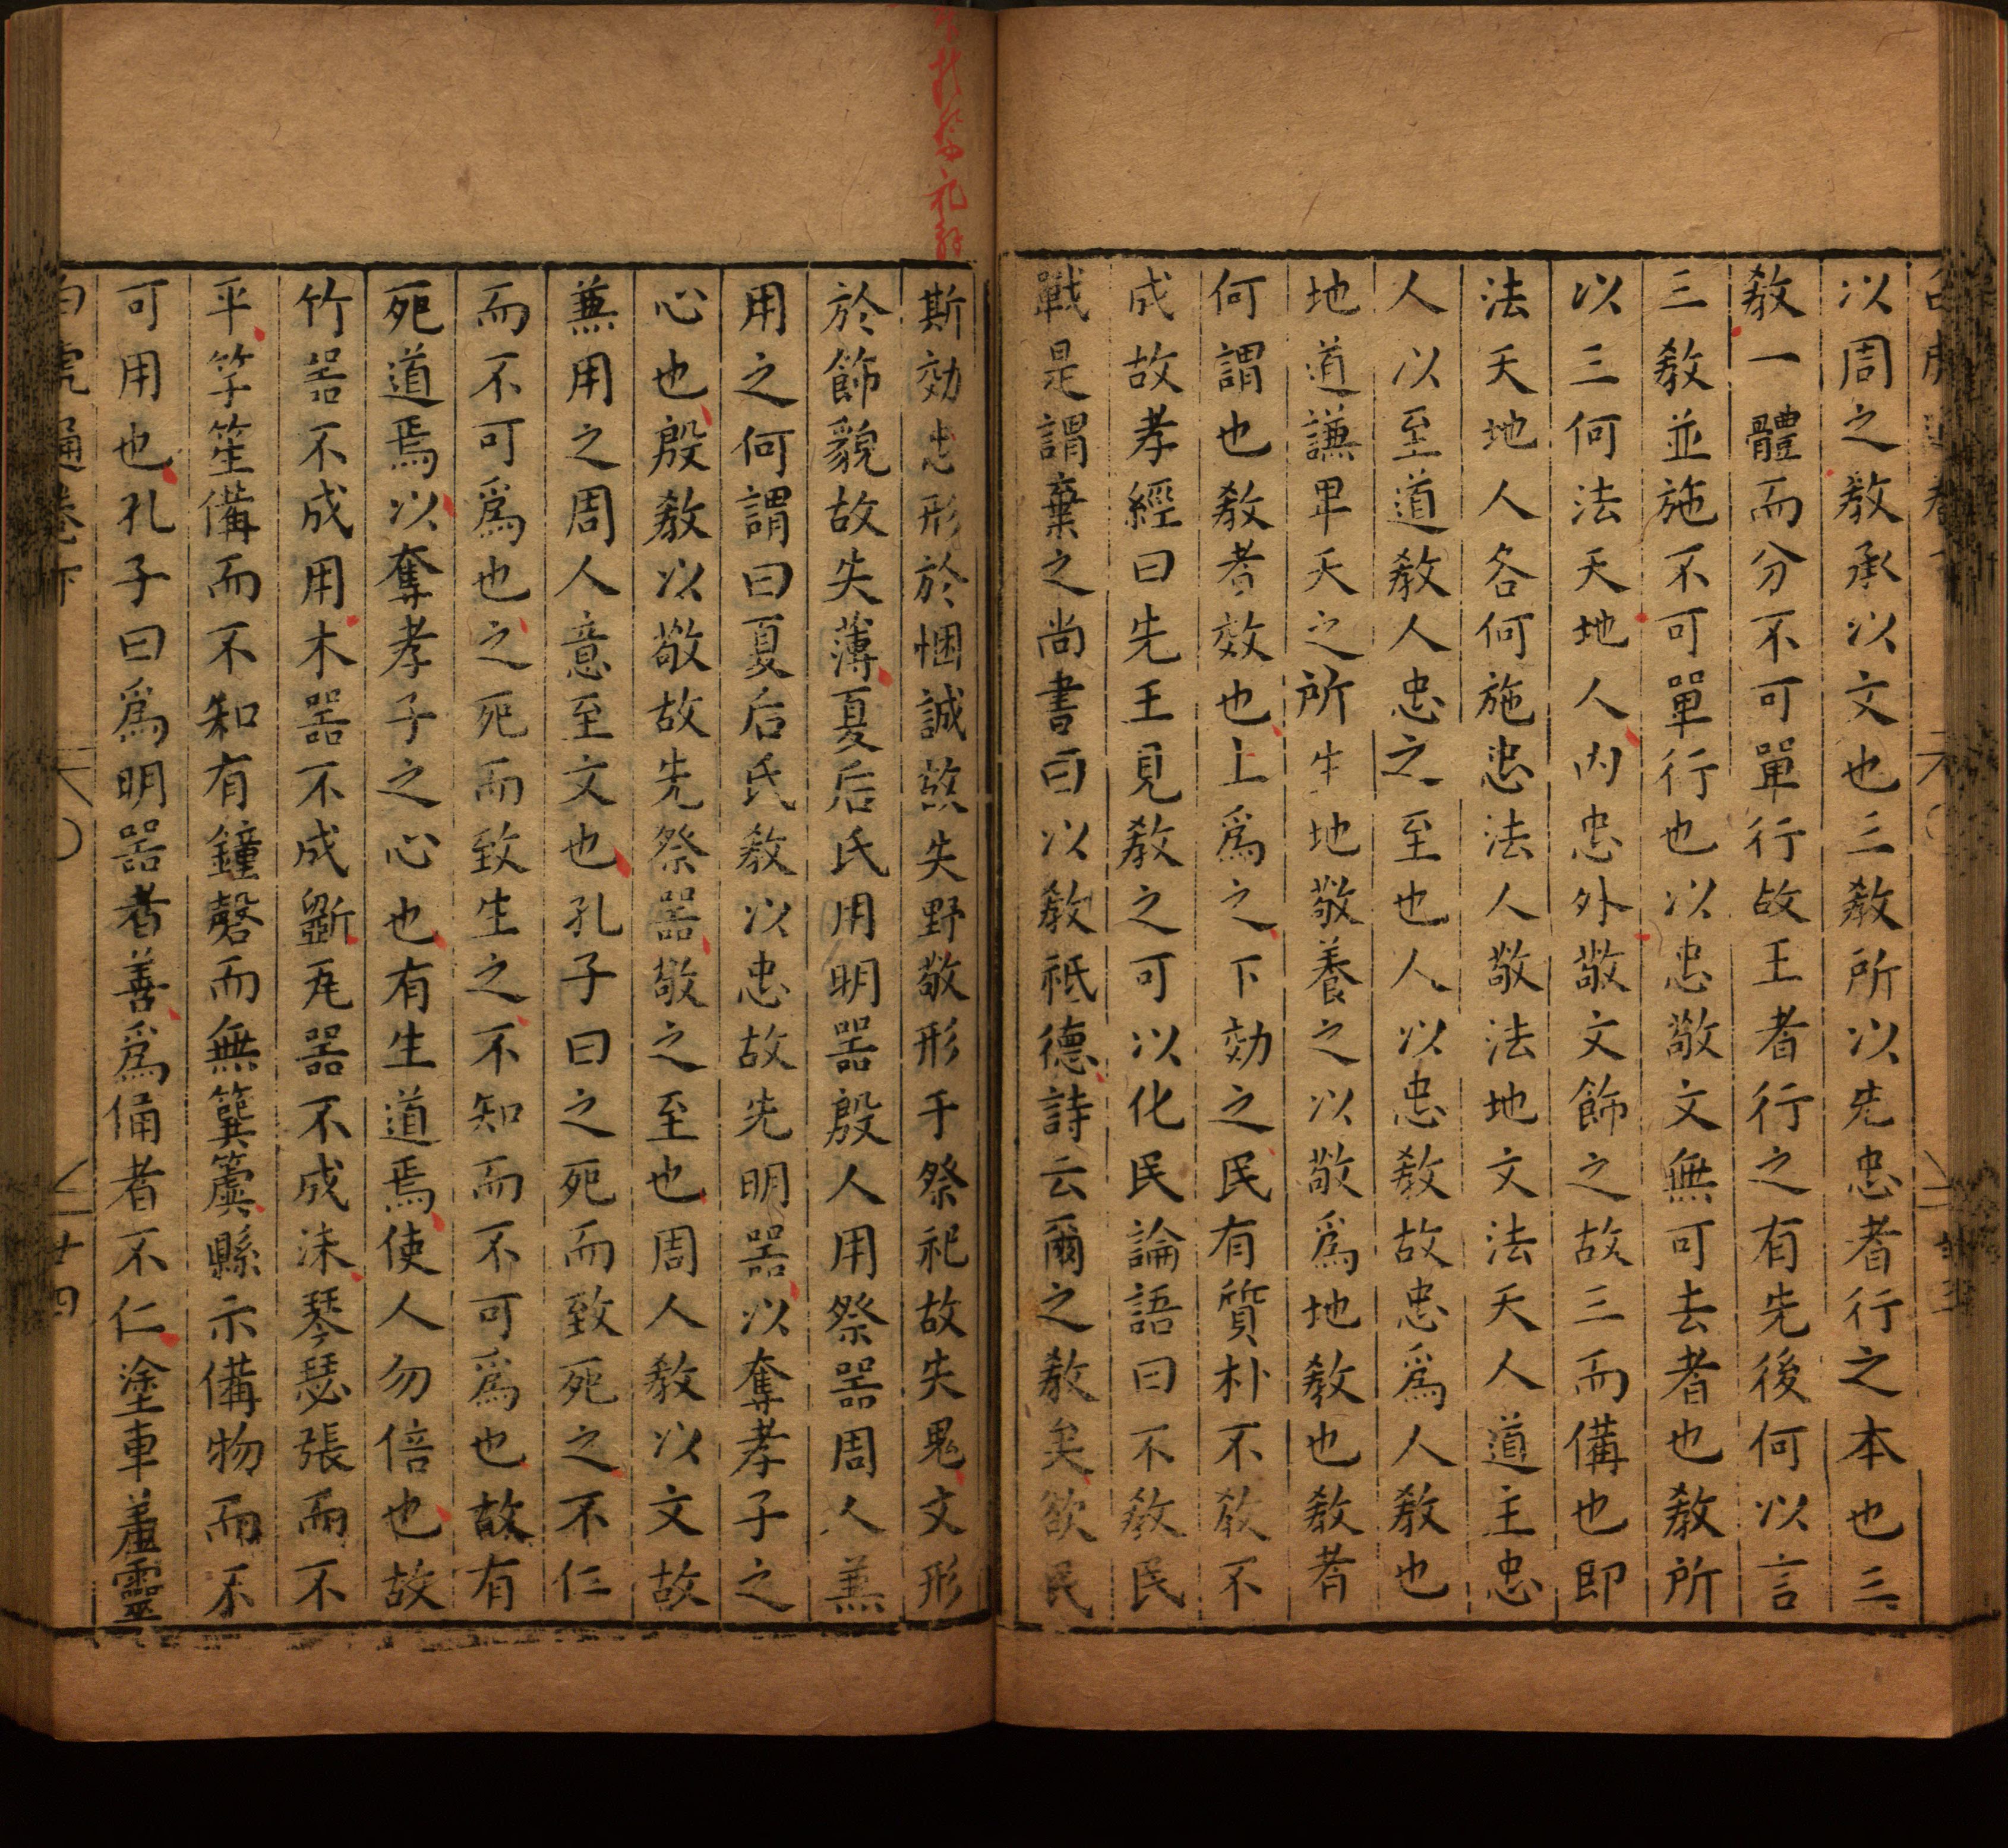 以周之教承以文也三教所以先忠者行之本也三
教一體而分不可單行故王者行之有先後何以言
三教並施不可單行也以忠敬文無可去者也教所
以三何法天地人内忠外敬文飾之故三而備也即
法天地人各何施忠法人敬法地文法天人道主忠
人以至道教人忠之至也人以忠教故忠爲人教也
地道謙𤰞天之所生地敬養之以敬爲地教也教者
何謂也教者效也上爲之下効之民有質朴不教不
成故孝經曰先王見教之可以化民論語曰不教民
戰是謂棄之尚書曰以教祗德詩云爾之教矣欲民
斯効忠形於悃誠故失野敬形于祭祀故失鬼文形
於飾貌故失薄夏后氏用明噐殷人用祭噐周人兼
用之何謂曰夏后氏教以忠故先明噐以奪孝子之
心也殷教以敬故先祭噐敬之至也周人教以文故
兼用之周人意至文也孔子曰之死而致死之不仁
而不可爲也之死而致生之不知而不可爲也故有
死道焉以奪孝子之心也有生道焉使人勿倍也故
竹噐不成用木噐不成斵瓦噐不成沬琴瑟張而不
平竽笙備而不和有鐘磬而無簨簴縣示備物而不
可用也孔子曰爲明噐者善爲俑者不仁塗車芻靈
白虎通卷下
廿四